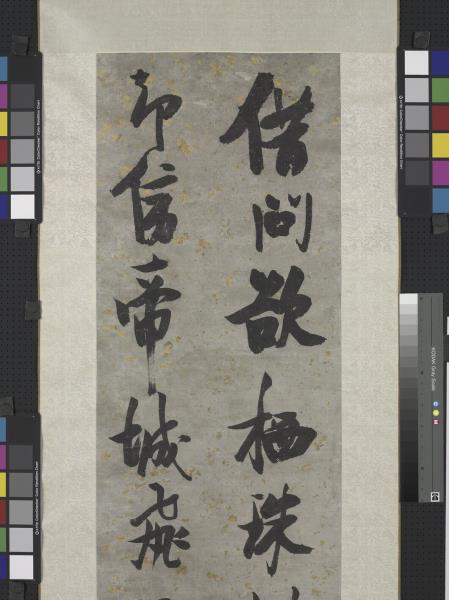 借問欲栖珠
却帝城飛
KODAK Gray Scale